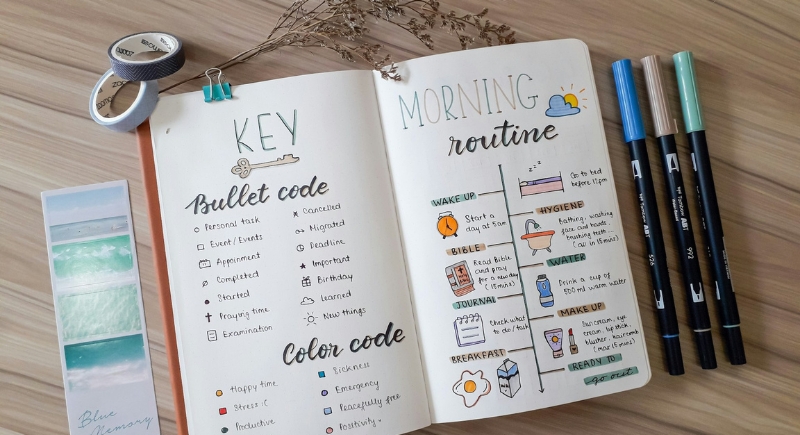 KEY
Bullet code
Personal task
Event/Events
Appoinment
Completed
Started
Praying time
Examination
Cancelled
Migrated
Deadline
Important
Birthday
Learned
New things
Color code
Happy time
Stress :(
Productive
Sickness
Emergency
Peacefully free
Positivity
MORNING
routine
z z z
Go to bed
before 11pm
WAKE UP
Start a
day at 5am
HYGIENE
Bathing, washing
face and hands,
brushing teeth...
(all in 15 mins)
BIBLE
Read Bible
and pray
for a new day
(15mins)
WATER
Drink a cup of
500 ml warm water
JOURNAL
Check what
to do/task
MAKE UP
Suncream, eye
cream, lipstick,
blusher, hair comb
(max 15 mins)
BREAKFAST
READY TO
go out
Blue
Memory
Tombow ABT
526
Tombow ABT
992
Tombow ABT